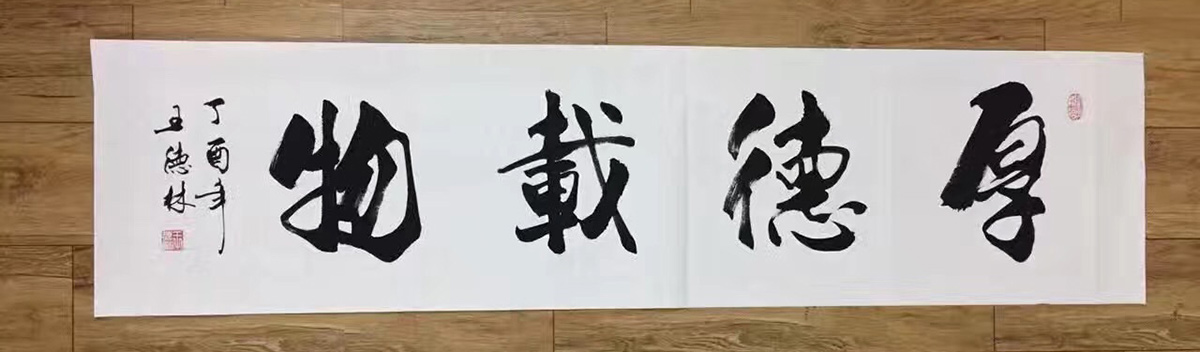 厚德載物
丁酉年
王德林